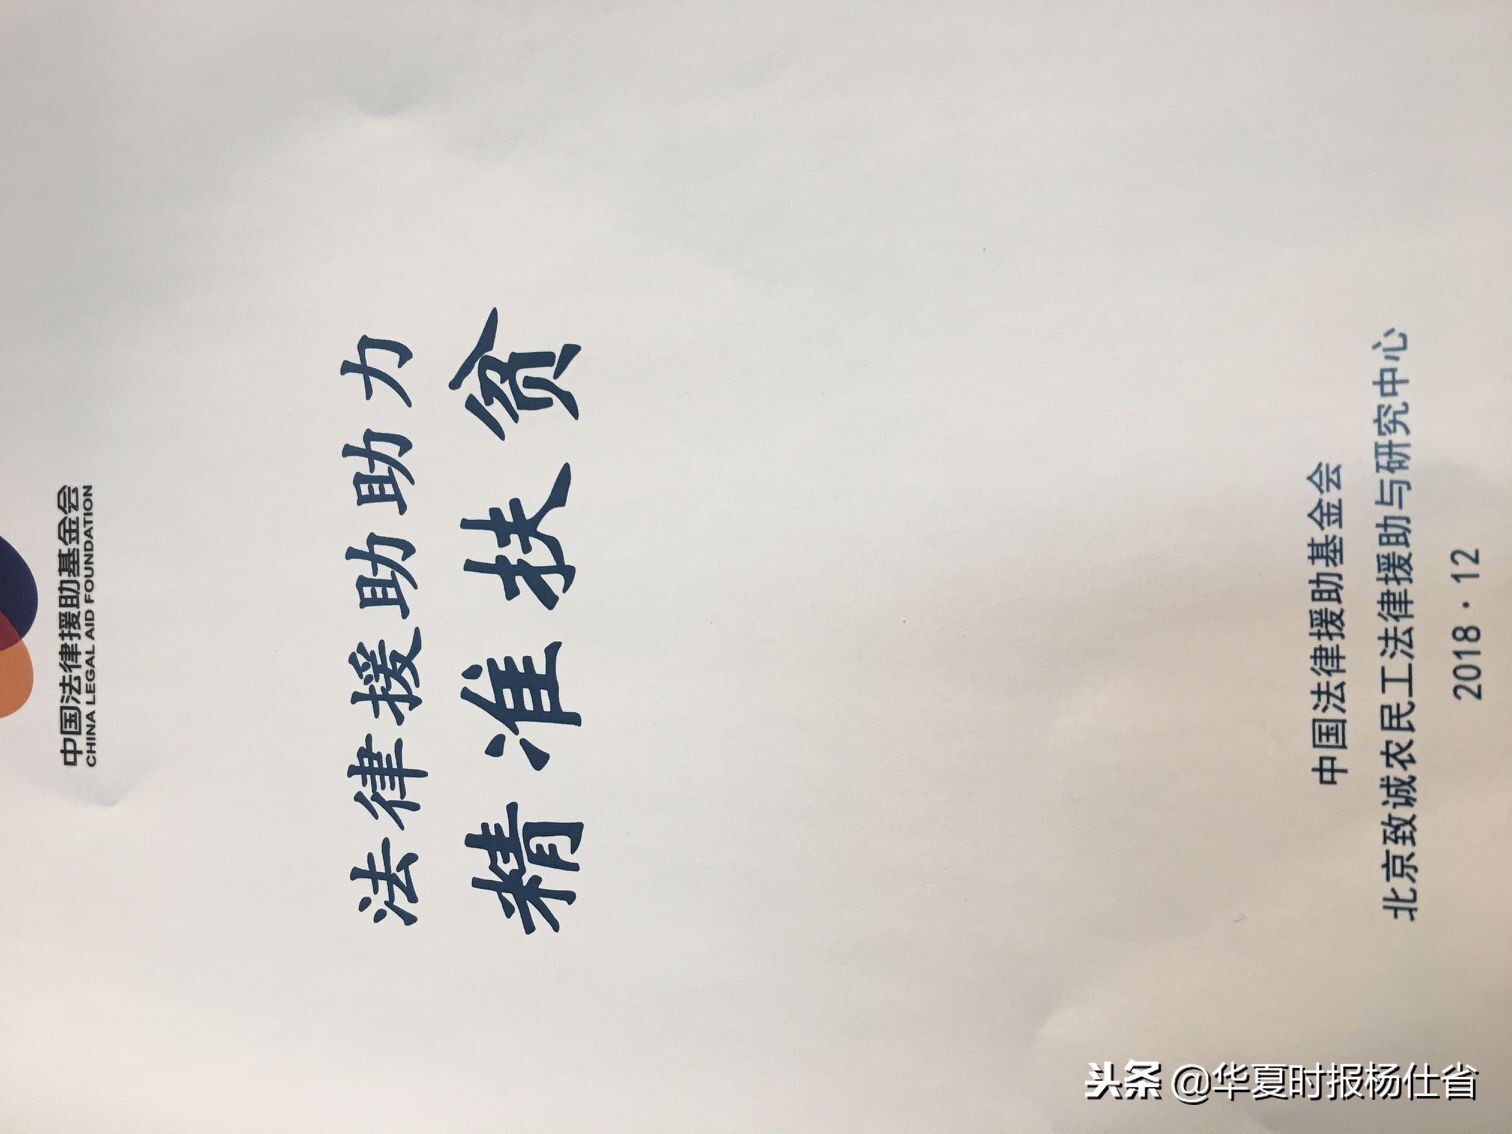 中国法律援助基金会
CHINA LEGAL AID FOUNDATION
法律援助助力
精准扶贫
中国法律援助基金会
北京致诚农民工法律援助与研究中心
2018·12
头条 @华夏时报杨仕省